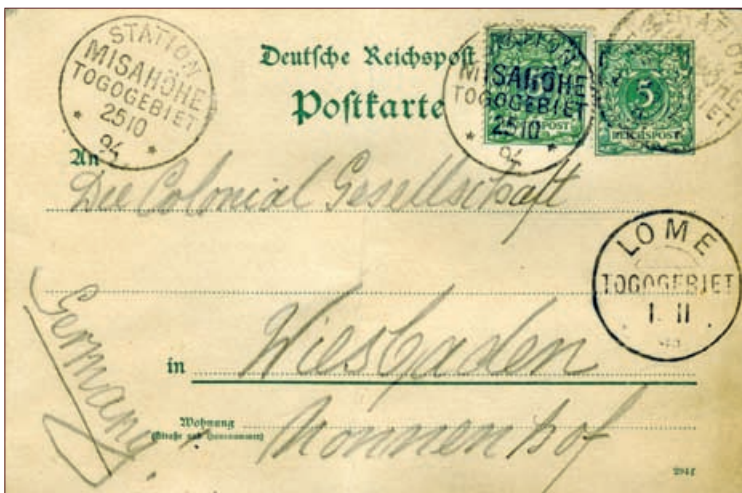 STATION
MISAHÖHE
TOGOGEBIET
25 10
94
Deutsche Reichspost
Postkarte
STATION
MISAHÖHE
TOGOGEBIET
25 10
94
REICHSPOST
5
REICHSPOST
STATION
An
Die Colonial Gesellschaft
LOME
TOGOGEBIET
1. 11
Germany.
in Wiesbaden
Wohnung
(Straße und Hausnummer)
Nonnenhof